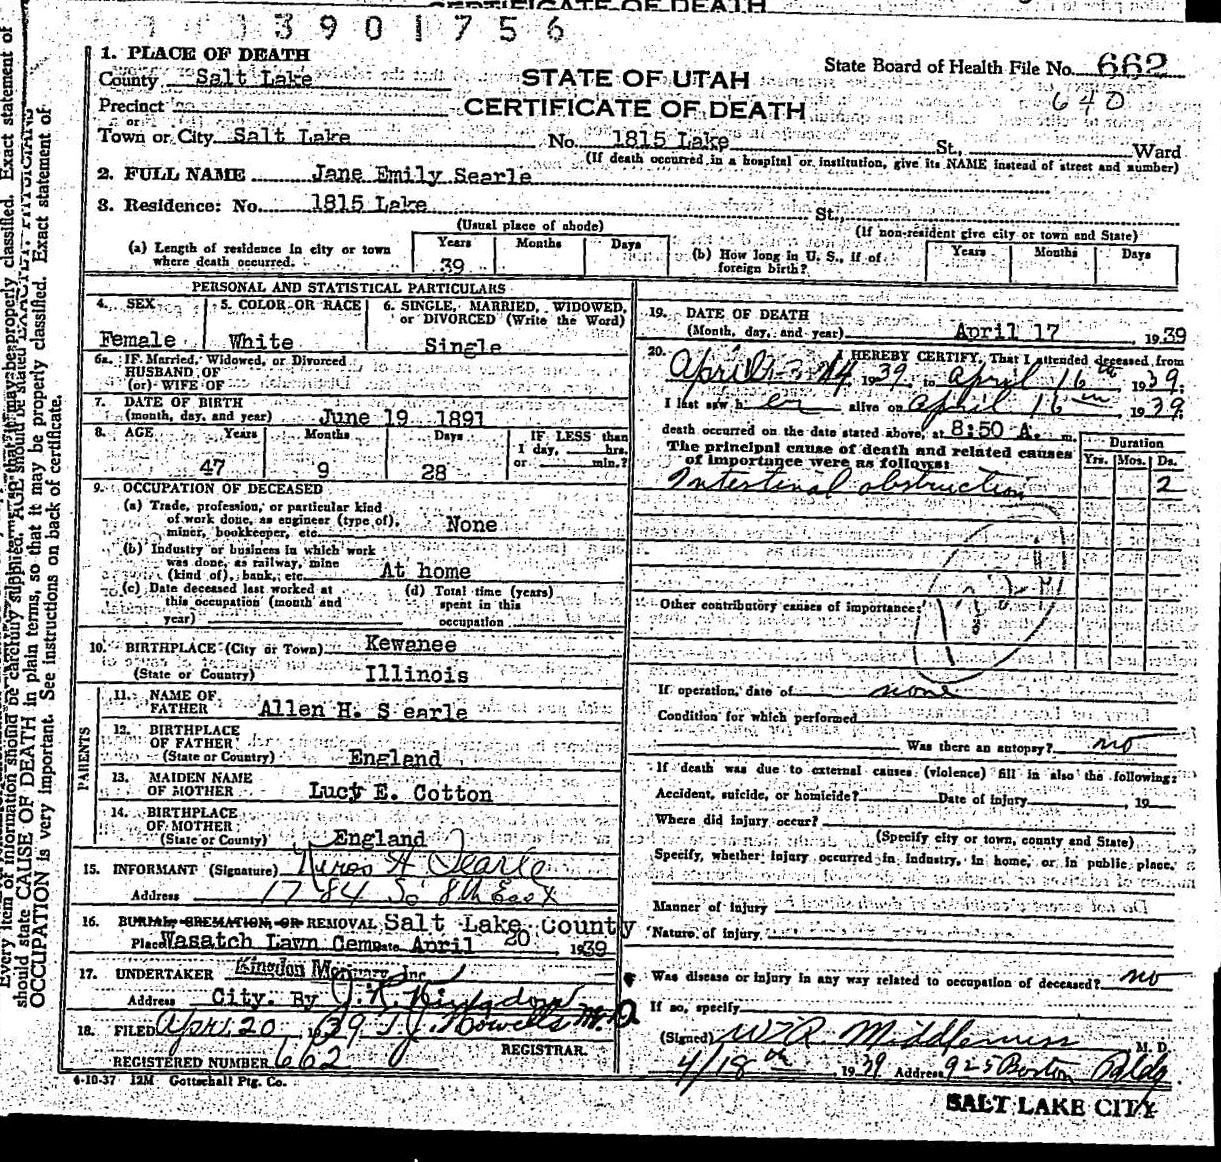 CERTIFICATE OF DEATH
3 9 0 1 7 5 6
1. PLACE OF DEATH
County Salt Lake
STATE OF UTAH
State Board of Health File No. 662
640
Precinct
or
CERTIFICATE OF DEATH
Town or City Salt Lake No. 1815 Lake St., Ward
(If death occurred in a hospital or institution, give its NAME instead of street and number)
2. FULL NAME Jane Emily Searle
3. Residence: No. 1815 Lake St.,
(Usual place of abode) (If non-resident give city or town and State)
(a) Length of residence in city or town where death occurred. Years 39 Months Days
(b) How long in U. S., if of foreign birth? Years Months Days
PERSONAL AND STATISTICAL PARTICULARS
4. SEX Female
5. COLOR OR RACE White
6. SINGLE, MARRIED, WIDOWED, or DIVORCED (Write the Word) Single
6a. IF Married, Widowed, or Divorced
HUSBAND OF
(or) WIFE OF
7. DATE OF BIRTH
(month, day, and year) June 19 1891
8. AGE Years Months Days IF LESS than
1 day, hrs.
or min.?
47 9 28
9. OCCUPATION OF DECEASED
(a) Trade, profession, or particular kind
of work done, as engineer (type of),
miner, bookkeeper, etc. None
(b) Industry or business in which work
was done, as railway, mine
(kind of), bank, etc. At home
(c) Date deceased last worked at
this occupation (month and
year)
(d) Total time (years)
spent in this
occupation
10. BIRTHPLACE (City or Town) Kewanee
(State or Country) Illinois
PARENTS
11. NAME OF
FATHER Allen H. S earle
12. BIRTHPLACE
OF FATHER
(State or Country) England
13. MAIDEN NAME
OF MOTHER Lucy E. Cotton
14. BIRTHPLACE
OF MOTHER
(State or County) England
15. INFORMANT (Signature) A Searle
Address 1784 So 8th East
16. BURIAL, CREMATION, OR REMOVAL Salt Lake County
Place Wasatch Lawn Cem Date April 20 1939
17. UNDERTAKER Kingdon Mortuary Inc
Address City. By J. R. Kingdon
18. FILED Apr. 20 1939 T. J. Howells M.D.
REGISTRAR.
REGISTERED NUMBER 662
4-10-37 12M Gottschall Ptg. Co.
19. DATE OF DEATH
(Month, day, and year) April 17 1939
20. I HEREBY CERTIFY, That I attended deceased from
April 14 1939 to April 16th 1939;
I last saw her alive on April 16th 1939;
death occurred on the date stated above, at 8:50 A. m.
The principal cause of death and related causes
of importance were as follows:
Duration
Yrs. Mos. Ds.
Intestinal obstruction 2
Other contributory causes of importance:
If operation, date of none
Condition for which performed
Was there an autopsy? no
If death was due to external causes (violence) fill in also the following:
Accident, suicide, or homicide? Date of injury , 19
Where did injury occur?
(Specify city or town, county and State)
Specify, whether injury occurred in industry, in home, or in public place.
Manner of injury
Nature of injury
Was disease or injury in any way related to occupation of deceased? no
If so, specify
(Signed) W R Middlemiss M. D.
4/18th , 1939 Address 925 Boston Bldg
SALT LAKE CITY
should state CAUSE OF DEATH in plain terms, so that it may be properly classified. Exact statement of
OCCUPATION is very important. See instructions on back of certificate.